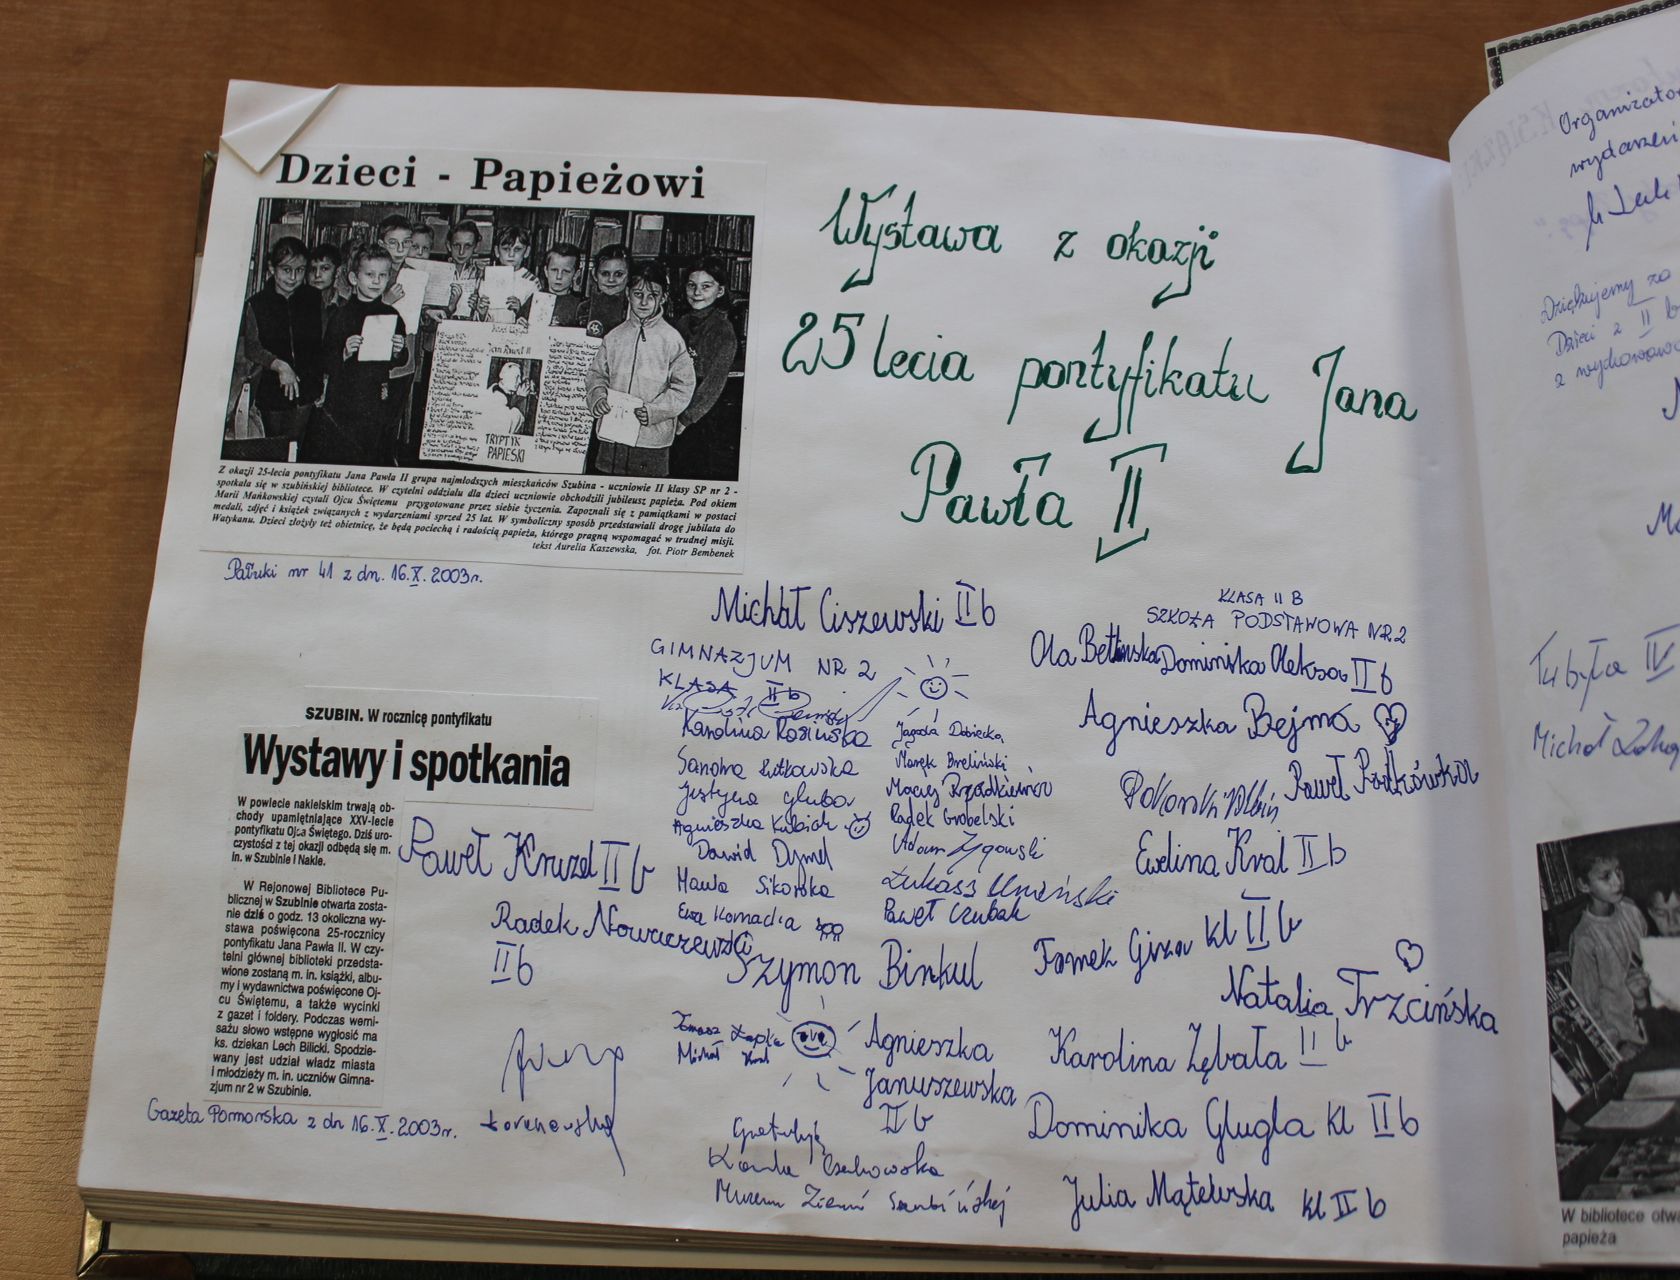 Dzieci - Papieżowi
Jan Paweł II
TRYPTYK
PAPIESKI
Z okazji 25-lecia pontyfikatu Jana Pawła II grupa najmłodszych mieszkańców Szubina - uczniowie II klasy SP nr 2 -
spotkała się w szubińskiej bibliotece. W czytelni oddziału dla dzieci uczniowie obchodzili jubileusz papieża. Pod okiem
Marii Mańkowskiej czytali Ojcu Świętemu przygotowane przez siebie życzenia. Zapoznali się z pamiątkami w postaci
medali, zdjęć i książek związanych z wydarzeniami sprzed 25 lat. W symboliczny sposób przedstawiali drogę jubilata do
Watykanu. Dzieci złożyły też obietnicę, że będą pociechą i radością papieża, którego pragną wspomagać w trudnej misji.
tekst Aurelia Kaszewska, fot. Piotr Bembenek
Pałuki nr 41 z dn. 16.X.2003r.
Wystawa z okazji
25 lecia pontyfikatu Jana
Pawła II
SZUBIN. W rocznicę pontyfikatu
Wystawy i spotkania
W powiecie nakielskim trwają ob-
chody upamiętniające XXV-lecie
pontyfikatu Ojca Świętego. Dziś uro-
czystości z tej okazji odbędą się m.
in. w Szubinie i Nakle.
W Rejonowej Bibliotece Pu-
blicznej w Szubinie otwarta zosta-
nie dziś o godz. 13 okoliczna wy-
stawa poświęcona 25-rocznicy
pontyfikatu Jana Pawła II. W czy-
telni głównej biblioteki przedsta-
wione zostaną m. in. książki, albu-
my i wydawnictwa poświęcone Oj-
cu Świętemu, a także wycinki
z gazet i foldery. Podczas werni-
sażu słowo wstępne wygłosić ma
ks. dziekan Lech Bilicki. Spodzie-
wany jest udział władz miasta
i młodzieży m. in. uczniów Gimna-
zjum nr 2 w Szubinie.
Gazeta Pomorska z dn 16.X.2003r.
Paweł Kruzel II b
Radek Nowaczewski
II b
Michał Ciszewski II b
GIMNAZJUM NR 2
KLASA II b
Karolina Rosińska
Sandra Lutkowska
Justyna Gluba
Agnieszka Kubiak
Dawid Dymel
Hania Sikorska
Ewa Kornacka
Jagoda Dobiecka
Marek Breliński
Maciej Rządkiewicz
Radek Grobelski
Adam Zygowski
Łukasz Umiński
Paweł Czubak
Szymon Binkul
Tomasz Łapka
Michał Kral
Agnieszka
Januszewska
II b
Gratuluję
Kamila Czechowska
Muzeum Ziemi Szubińskiej
KLASA II B
SZKOŁA PODSTAWOWA NR 2
Ola Betlińska Dominika Oleksa II b
Agnieszka Bejma
Paweł
Ewelina Kral II b
Tomek Giza kl II b
Natalia Trzcińska
Karolina Zębala II b
Dominika Glugla kl II b
Julia Mątewska kl II b
Organizator
wydarzeni
Dziękujemy za
Dzieci z II b
z wychowawc
Tubyła IV
Michał
W bibliotece otwa
papieża